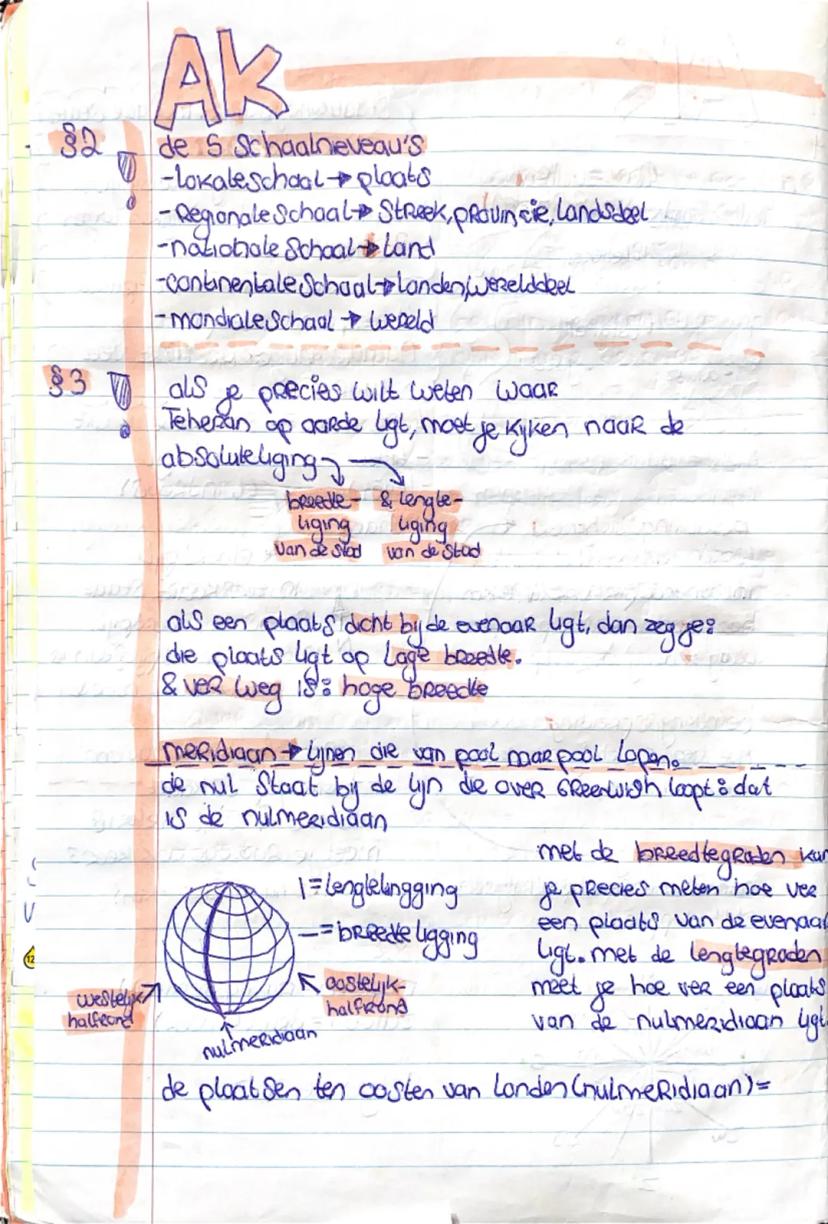 AK
§2 de 5 schaalneveau's
-lokale schaal → plaats
-Regionale schaal → Streek, provincie, landsdeel
-nationale schaal → land
-continentale schaal → landen, werelddeel
-mondiale schaal → wereld
§3 als je precies wilt weten waar
Teheran op aarde ligt, moet je kijken naar de
absolute liging
breedte- & lengte-
liging liging
van de stad van de stad
als een plaats dicht bij de evenaar ligt, dan zeg je:
die plaats ligt op Lage breedte.
& ver weg is: hoge breedte
meridiaan → lijnen die van pool naar pool lopen.
de nul staat bij de lijn die over Greenwish loopt: dat
is de nulmeridiaan
| = lengtelingging
— = breedte ligging
westelijk halfrond
oostelijk- halfrond
nulmeridiaan
met de breedtegraden kan
je precies meten hoe ver
een plaats van de evenaar
ligt. met de lengtegraden
meet je hoe ver een plaats
van de nulmeridiaan ligt.
de plaatsen ten oosten van Londen (nulmeridiaan) =
12